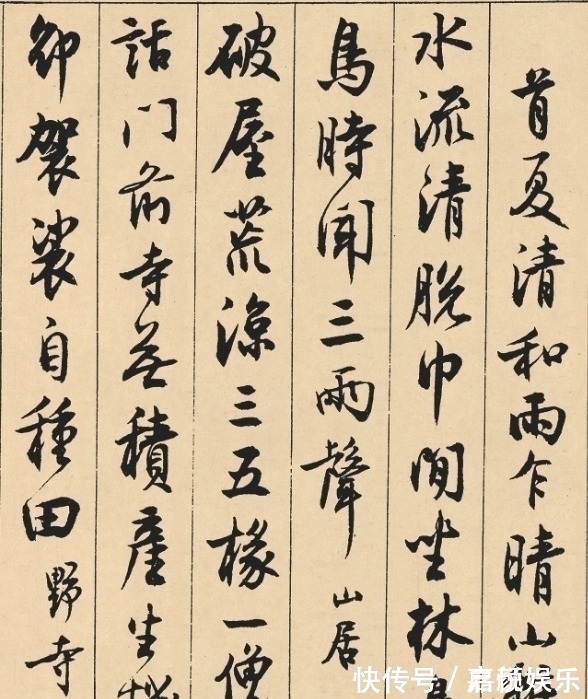 首夏清和雨乍晴山
水流清脱巾閒坐林
鳥時聞三兩聲 山居
破屋荒涼三五椽一僧
話門前寺無積產生
卸袈裟自種田 野寺
快传号／嘉颜娱乐